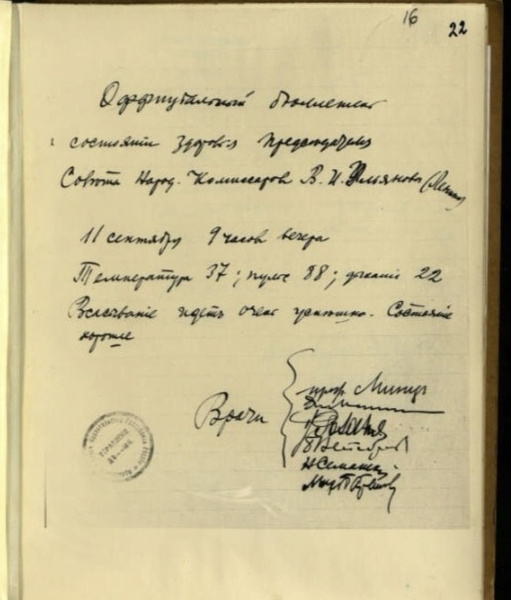 16
22
Оффицiальный бюллетень
состоянiи здоровья Председателя
Совета Народ. Комиссаров В. И. Ульянова (Ленина)
11 сентября 9 часов вечера
Температура 37; пульс 88; дыханiе 22
Всасыванiе идетъ очень успешно. Состоянiе
хорошее
Врачи
проф. Минц
Н Семашко